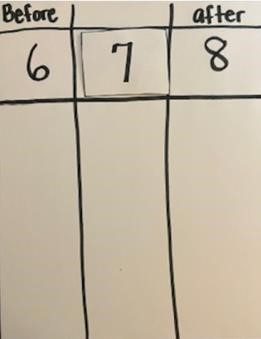 Before after
6 7 8